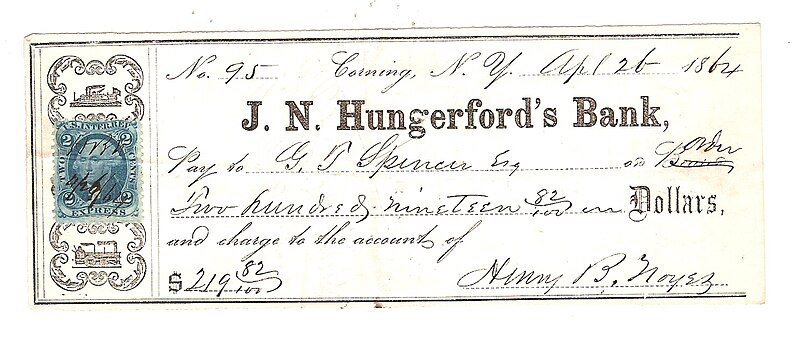 No. 95 Corning, N. Y. Apl 26 1864
J. N. Hungerford's Bank,
Pay to G. T. Spencer Esq or order
Two hundred nineteen 82/100 Dollars,
and charge to the account of
$ 219 82/100 Henry B. Noyes
U.S. INTER. REV.
2 2
TWO CENTS
2 2
EXPRESS